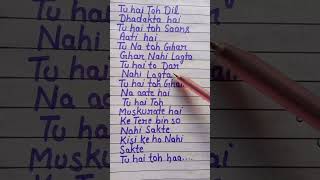 Tu hai Toh Dil
Dhadakta hai
Tu hai toh Saans
Aati hai
Tu Na toh Ghar
Ghar Nahi Lagta
Tu hai to Dar
Nahi Lagta
Tu hai toh Gham
Na aate hai
Tu hai Toh
Muskurate hai
Ke Tere bin so
Nahi Sakte
Kisi Ke ho Nahi
Sakte
Tu hai toh haa....